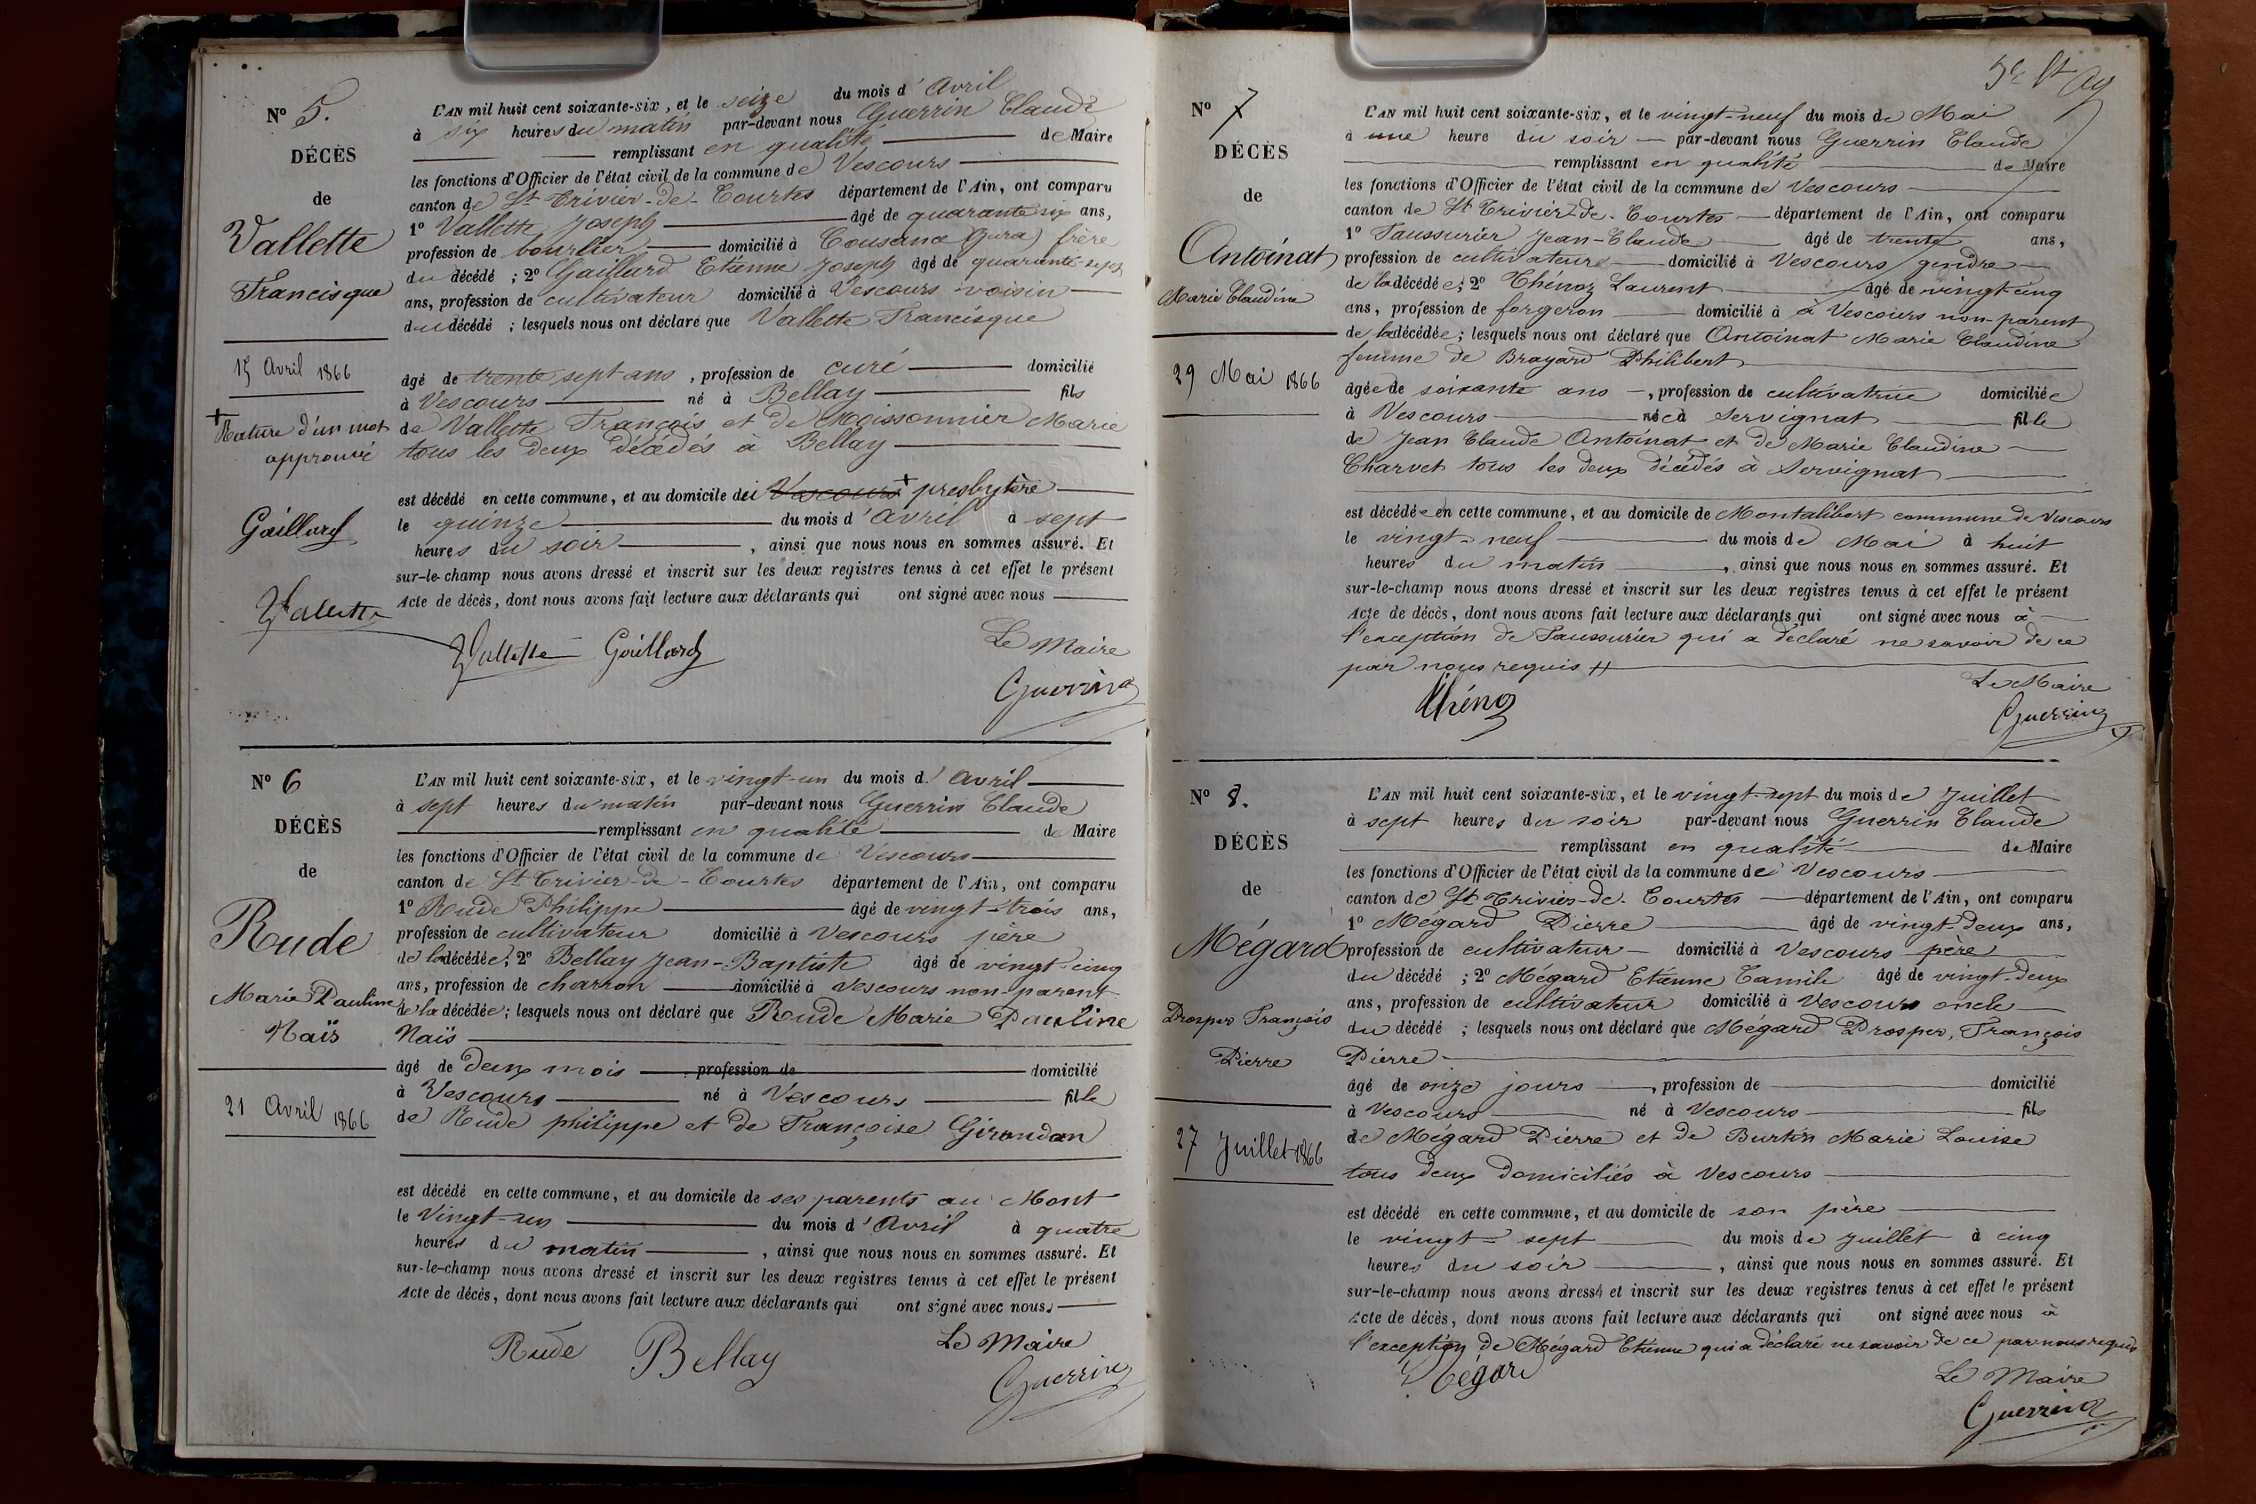 N° 5.
DÉCÈS
de
Vallette
Francisque
15 Avril 1866
+ Rature d'un mot
approuvé
Gaillard
Vallette
L'AN mil huit cent soixante-six, et le seize du mois d'Avril
à six heures du matin par-devant nous Guerrin Claude
remplissant en qualité de Maire
les fonctions d'Officier de l'état civil de la commune de Vescours
canton de St Trivier-de-Courtes département de l'Ain, ont comparu
1° Vallette Joseph âgé de quarante six ans,
profession de bourlier domicilié à Cousance (Jura) frère
du décédé ; 2° Gaillard Etienne Joseph âgé de quarante-sept
ans, profession de cultivateur domicilié à Vescours voisin
du décédé ; lesquels nous ont déclaré que Vallette Francisque
âgé de trente sept ans, profession de curé domicilié
à Vescours né à Bellay fils
de Vallette François et de Moissonnier Marie
tous les deux décédés à Bellay
est décédé en cette commune, et au domicile dei Vescours + presbytère
le quinze du mois d'Avril à sept
heures du soir, ainsi que nous nous en sommes assuré. Et
sur-le-champ nous avons dressé et inscrit sur les deux registres tenus à cet effet le présent
Acte de décès, dont nous avons fait lecture aux déclarants qui ont signé avec nous
Vallette Gaillard Le Maire
Guerrin
N° 6
DÉCÈS
de
Rude
Marie Pauline
Naïs
21 Avril 1866
L'AN mil huit cent soixante-six, et le vingt-un du mois d'Avril
à sept heures du matin par-devant nous Guerrin Claude
remplissant en qualité de Maire
les fonctions d'Officier de l'état civil de la commune de Vescours
canton de St Trivier-de-Courtes département de l'Ain, ont comparu
1° Rude Philippe âgé de vingt-trois ans,
profession de cultivateur domicilié à Vescours père
de la décédée ; 2° Bellay Jean-Baptiste âgé de vingt-cinq
ans, profession de charron domicilié à Vescours non-parent
de la décédée ; lesquels nous ont déclaré que Rude Marie Pauline
Naïs
âgé de deux mois profession de domicilié
à Vescours né à Vescours fille
de Rude philippe et de Françoise Giroudan
est décédé en cette commune, et au domicile de ses parents au Mont
le Vingt-un du mois d'Avril à quatre
heures du matin, ainsi que nous nous en sommes assuré. Et
sur-le-champ nous avons dressé et inscrit sur les deux registres tenus à cet effet le présent
Acte de décès, dont nous avons fait lecture aux déclarants qui ont signé avec nous.
Rude Bellay Le Maire
Guerrin
N° 7
DÉCÈS
de
Antoinat
Marie Claudine
29 Mai 1866
L'AN mil huit cent soixante-six, et le vingt-neuf du mois de Mai
à une heure du soir par-devant nous Guerrin Claude
remplissant en qualité de Maire
les fonctions d'Officier de l'état civil de la commune de Vescours
canton de St Trivier-de-Courtes département de l'Ain, ont comparu
1° Faussurier Jean-Claude âgé de trente ans,
profession de cultivateur domicilié à Vescours gendre
de la décédée ; 2° Thénoz Laurent âgé de vingt cinq
ans, profession de forgeron domicilié à à Vescours non-parent
de la décédée ; lesquels nous ont déclaré que Antoinat Marie Claudine
femme de Brayard Philibert
âgée de soixante ans, profession de cultivatrice domiciliée
à Vescours née à Servignat fille
de Jean Claude Antoinat et de Marie Claudine
Charvet tous les deux décédés à Servignat
est décédée en cette commune, et au domicile de Montalibert commune de Vescours
le vingt-neuf du mois de Mai à huit
heures du matin, ainsi que nous nous en sommes assuré. Et
sur-le-champ nous avons dressé et inscrit sur les deux registres tenus à cet effet le présent
Acte de décès, dont nous avons fait lecture aux déclarants qui ont signé avec nous à
l'exception de Faussurier qui a déclaré ne savoir de ce
par nous requis
Le Maire
Thénoz Guerrin
N° 8.
DÉCÈS
de
Mégard
Prosper François
Pierre
27 Juillet 1866
L'AN mil huit cent soixante-six, et le vingt-sept du mois de Juillet
à sept heures du soir par-devant nous Guerrin Claude
remplissant en qualité de Maire
les fonctions d'Officier de l'état civil de la commune de Vescours
canton de St Trivier-de-Courtes département de l'Ain, ont comparu
1° Mégard Pierre âgé de vingt-deux ans,
profession de cultivateur domicilié à Vescours père
du décédé ; 2° Mégard Etienne Camile âgé de vingt-deux
ans, profession de cultivateur domicilié à Vescours oncle
du décédé ; lesquels nous ont déclaré que Mégard Prosper, François
Pierre
âgé de onze jours, profession de domicilié
à Vescours né à Vescours fils
de Mégard Pierre et de Burtin Marie Louise
tous deux domiciliés à Vescours
est décédé en cette commune, et au domicile de son père
le vingt-sept du mois de Juillet à cinq
heures du soir, ainsi que nous nous en sommes assuré. Et
sur-le-champ nous avons dressé et inscrit sur les deux registres tenus à cet effet le présent
Acte de décès, dont nous avons fait lecture aux déclarants qui ont signé avec nous à
l'exception de Mégard Etienne qui a déclaré ne savoir de ce par nous requis
Mégard Le Maire
Guerrin